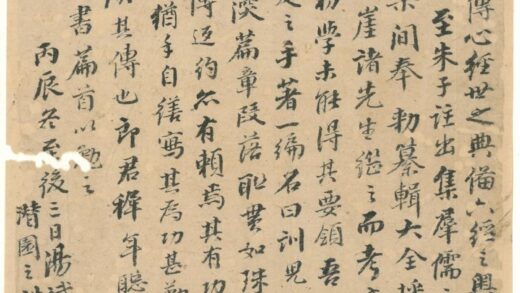 傳心經世之典備六經之奧
至朱子註出集羣儒
樂間奉勑纂輯大全
崖諸先生繼之而考
初學未能得其要領吾
之手著一編名曰訓兒
渙篇章段落聯貫如珠
傳近約然有賴焉其有功
猶手自繕寫其為功甚勤
其傳也郎君稚年聰
書篇首以勉之
丙辰冬至後三日湯斌
潛園之